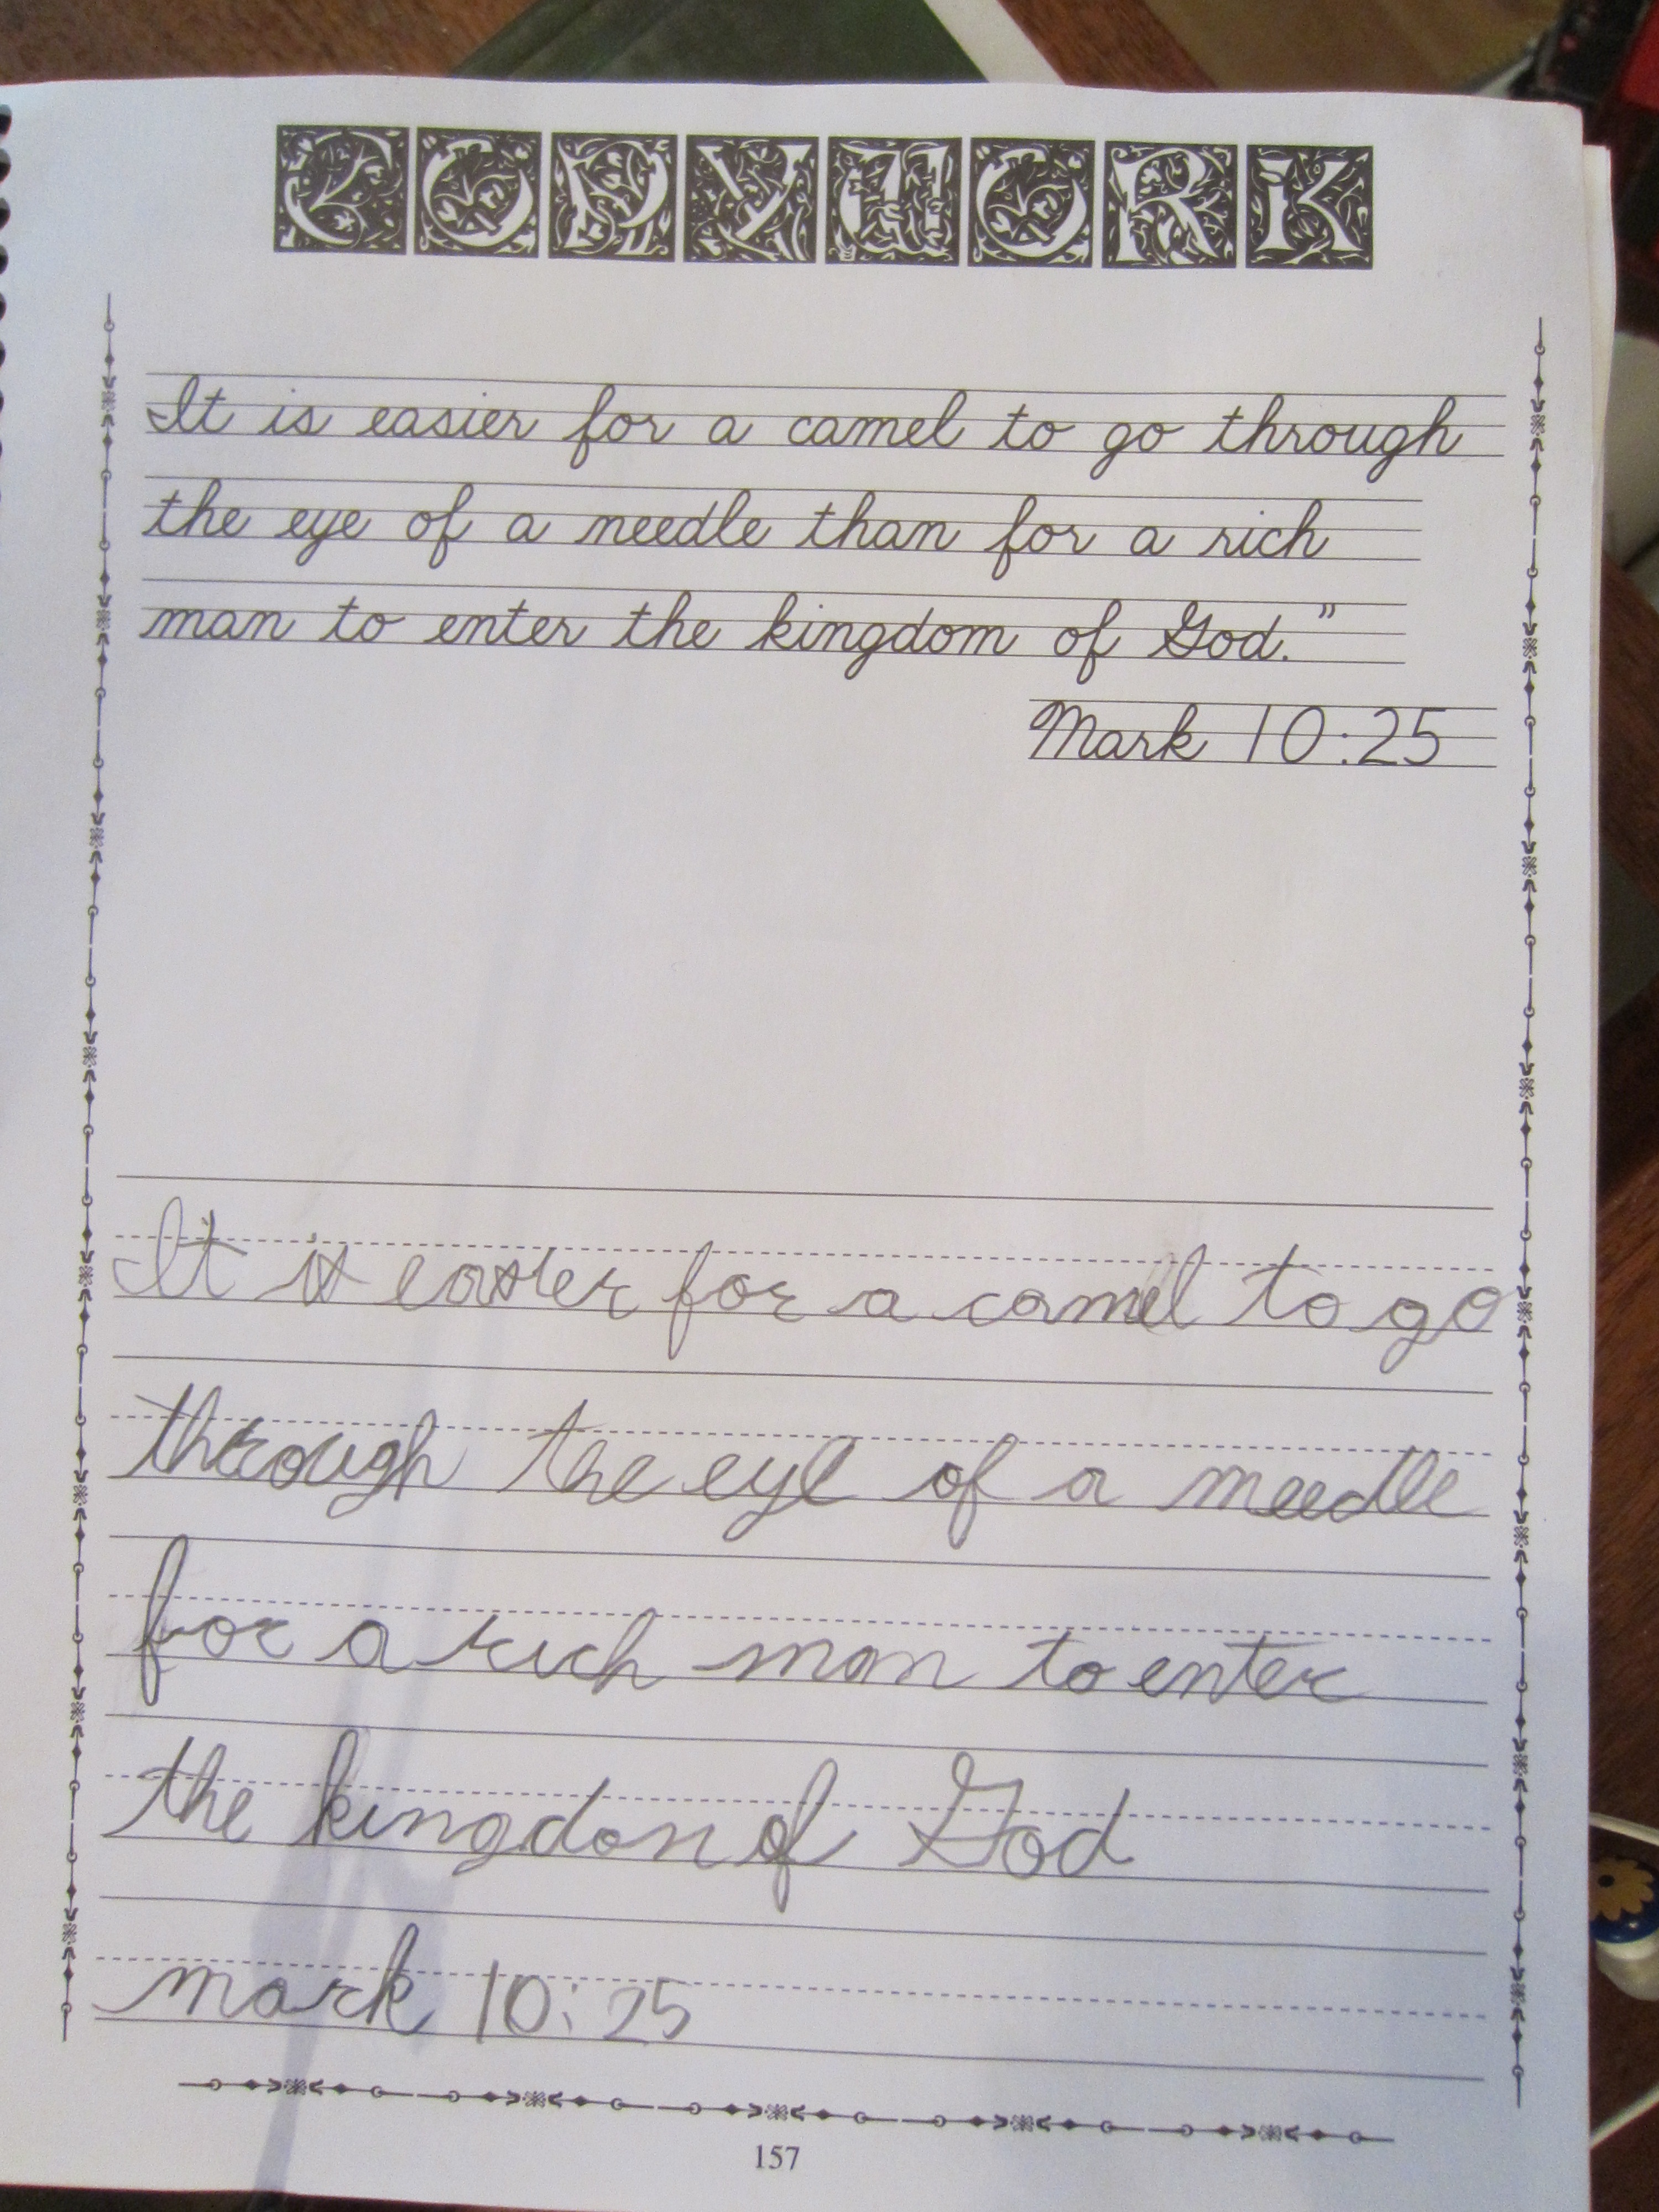 COPYWORK
It is easier for a camel to go through
the eye of a needle than for a rich
man to enter the kingdom of God.”
Mark 10:25
It is easier for a camel to go
through the eye of a needle
for a rich man to enter
the kingdon of God
mark 10:25
157